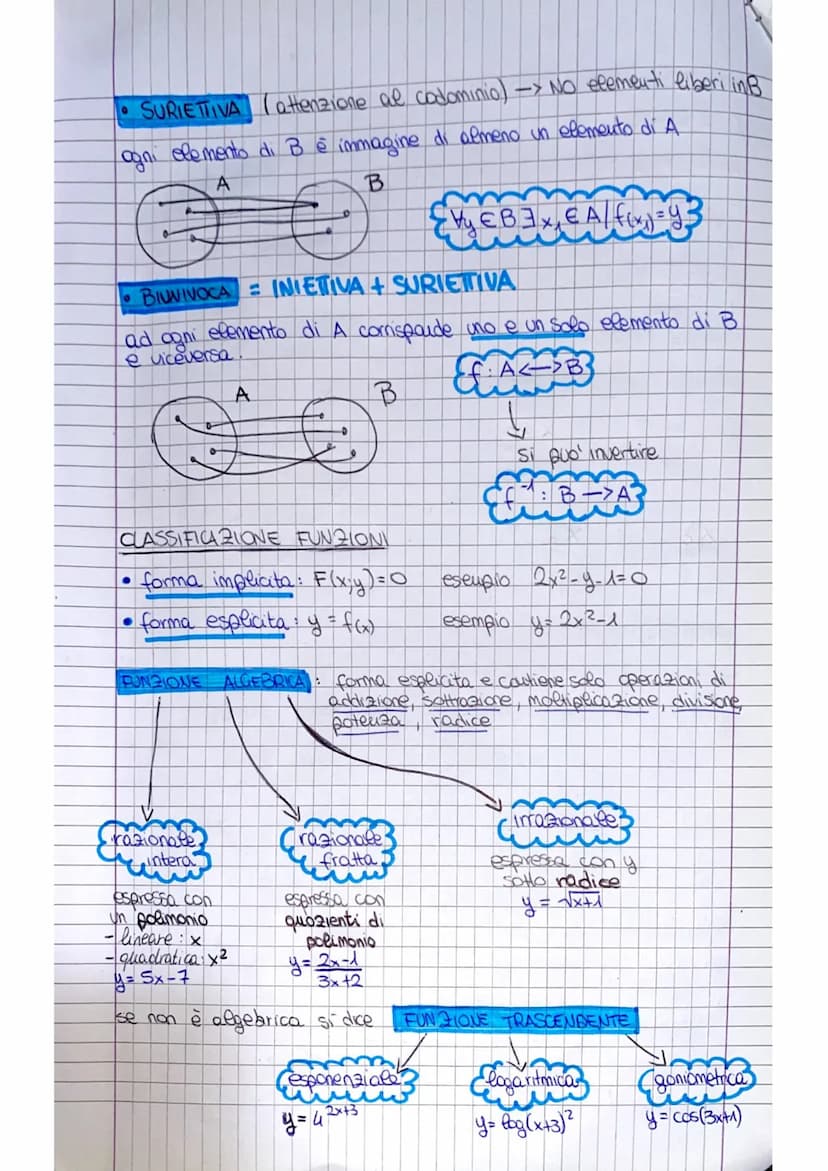 • SURIETTIVA (attenzione al codominio) -> NO elementi liberi in B
ogni elemento di B è immagine di almeno un elemento di A
A B
∀y∈B∃x₁∈A/f(x₁)=y
• BIUNIVOCA = INIETTIVA + SURIETTIVA
ad ogni elemento di A corrisponde uno e un solo elemento di B
e viceversa.
f: A<->B
A B
si puo' invertire
f⁻¹: B->A
CLASSIFICAZIONE FUNZIONI
• forma implicita: F(x;y)=0 esempio 2x²-y-1=0
• forma esplicita: y=f(x) esempio y=2x²-1
FUNZIONE ALGEBRICA: forma esplicita e contiene solo operazioni di
addizione, sottrazione, moltiplicazione, divisione,
potenza, radice
razionale
intera
espressa con
un polinomio
- lineare: x
- quadratica: x²
y=5x-7
razionale
fratta
espressa con
quozienti di
polinomio
y=2x-1
3x+2
irrazionale
espressa con y
sotto radice
y=√x+1
se non è algebrica si dice FUNZIONE TRASCENDENTE
esponenziale
y=4²ˣ⁺³
logaritmica
y=log(x+3)²
goniometrica
y=cos(3x+1)